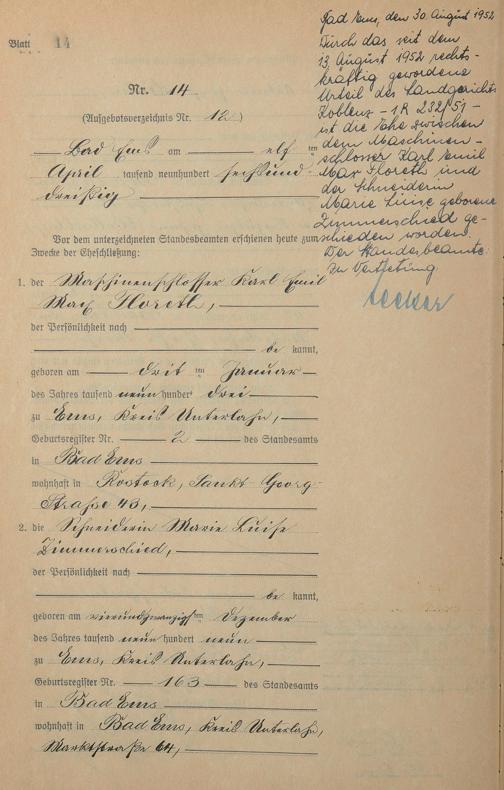 Blatt 14
Nr. 14
(Aufgebotsverzeichnis Nr. 12)
Bad Ems am elf ten
April tausend neunhundert sechsund-
dreißig
Vor dem unterzeichneten Standesbeamten erschienen heute zum
Zwecke der Eheschließung:
1. der Maschinenschlosser Karl Emil
Max Floreth,
der Persönlichkeit nach
be kannt,
geboren am drit ten Januar
des Jahres tausend neun hundert drei
zu Ems, Kreis Unterlahn,
Geburtsregister Nr. 2 des Standesamts
in Bad Ems
wohnhaft in Rostock, Sankt-Georg-
Straße 43,
2. die Schneiderin Marie Luise
Zimmerschied,
der Persönlichkeit nach
be kannt,
geboren am vierundzwanzigsten Dezember
des Jahres tausend neun hundert neun
zu Ems, Kreis Unterlahn,
Geburtsregister Nr. 163 des Standesamts
in Bad Ems
wohnhaft in Bad Ems, Kreis Unterlahn,
Marktstraße 64,
Bad Ems, den 30. August 1952
Durch das seit dem
13. August 1952 rechts-
kräftig gewordene
Urteil des Landgerichts
Koblenz - 1 R 232/51 -
ist die Ehe zwischen
dem Maschinen-
schlosser Karl Emil
Max Floreth und
der Schneiderin
Marie Luise geborene
Zimmerschied ge-
schieden worden.
Der Standesbeamte:
In Vertretung